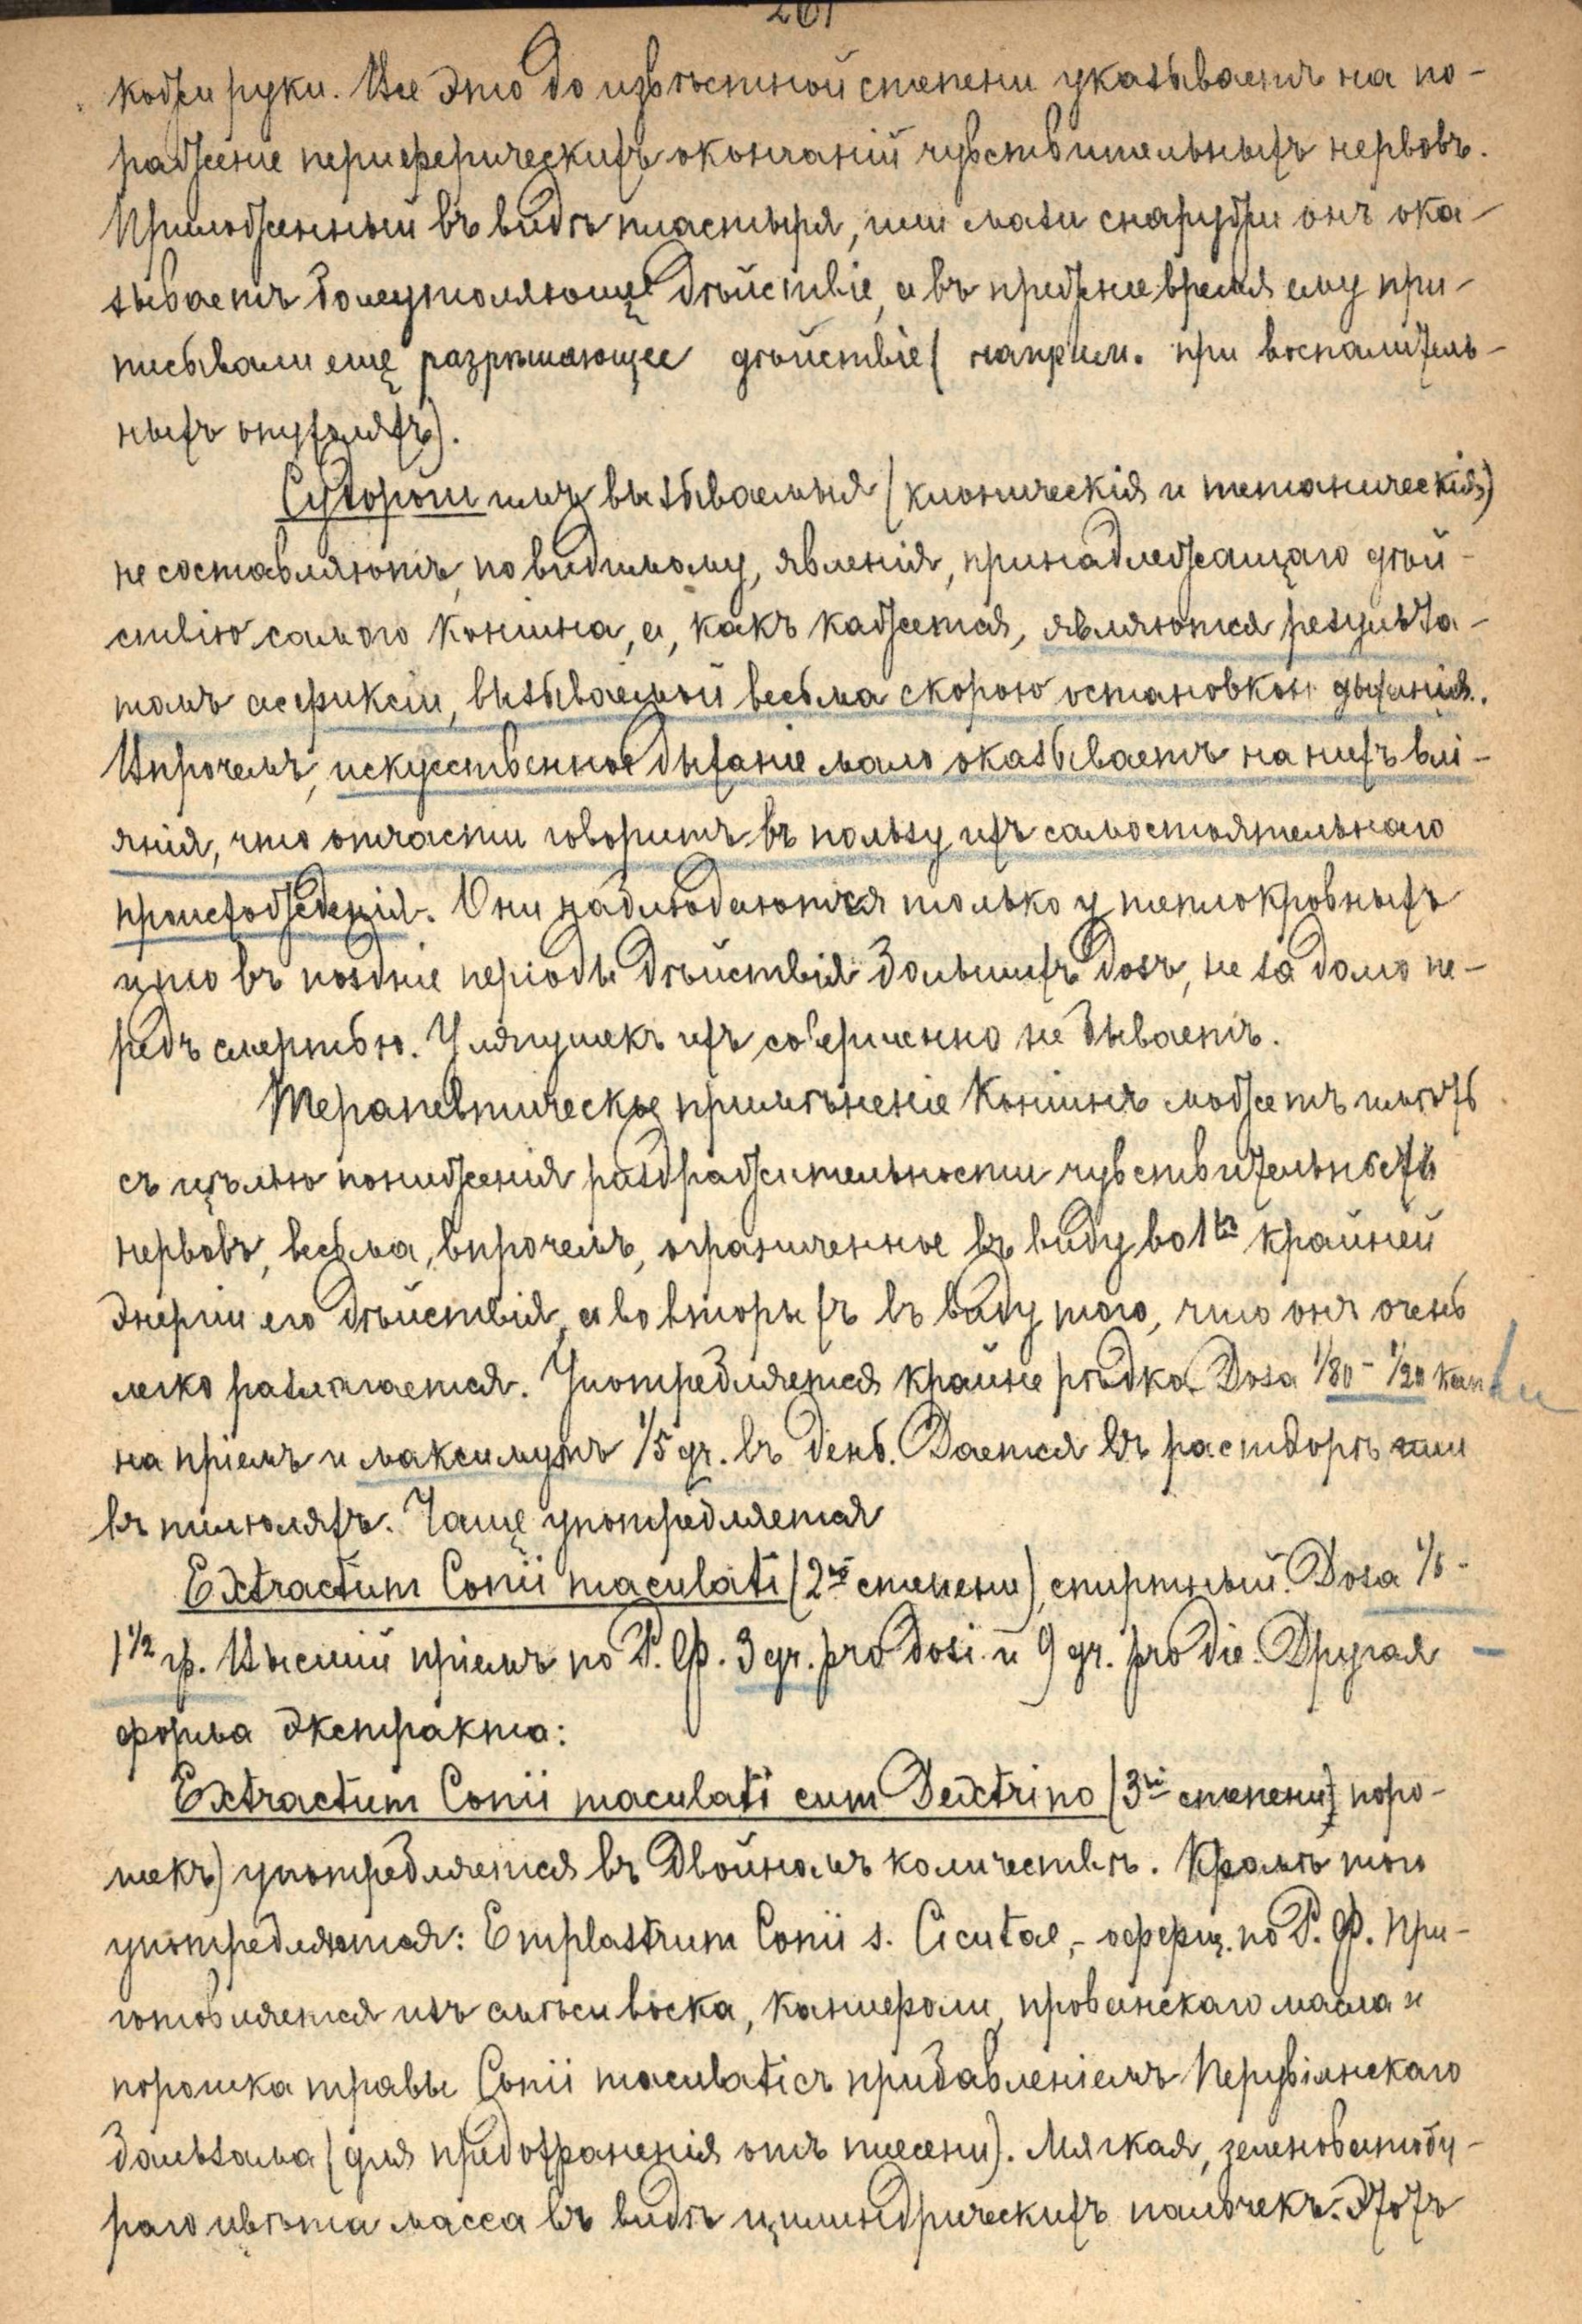 261
кожи руки. Все это до извѣстной степени указываетъ на по-
раженіе периферическихъ окончаній чувствительныхъ нервовъ.
Приложенный въ видѣ пластыря, или мази снаружи онъ ока-
зываетъ болеутоляющее дѣйствіе, а въ прежнее время ему при-
писывали еще разрѣшающее дѣйствіе (наприм. при воспалитель-
ныхъ опухоляхъ).
Судороги имъ вызываемыя (клоническія и тетаническія)
не составляютъ, повидимому, явленія, принадлежащаго дѣй-
ствію самого Коніина, а, какъ кажется, являются результа-
томъ асфиксіи, вызываемой весьма скорою остановкою дыханія.
Впрочемъ, искусственное дыханіе мало оказываетъ на нихъ влі-
янія, что отчасти говоритъ въ пользу ихъ самостоятельнаго
происхожденія. Они наблюдаются только у теплокровныхъ
и то въ поздніе періоды дѣйствія большихъ дозъ, не задолго пе-
редъ смертью. У лягушекъ ихъ совершенно не бываетъ.
Терапевтическое примѣненіе Коніинъ можетъ имѣть
съ цѣлью пониженія раздражительности чувствительныхъ
нервовъ, весьма, впрочемъ, ограниченное въ виду во 1хъ крайней
энергіи его дѣйствія, а во вторыхъ въ виду того, что онъ очень
легко разлагается. Употребляется крайне рѣдко. Доза 1/80 - 1/20 капли
на пріемъ и максимумъ 1/5 gr. въ день. Дается въ растворѣ или
въ пилюляхъ. Чаще употребляется
Extractum Conii maculati (2ой степени), спиртный. Доза 1/6 -
1 1/2 гр. Высшій пріемъ по Р. Ф. 3 gr. pro dosi и 9 gr. pro die. Другая
форма экстракта:
Extractum Conii maculati cum Dextrino (3ей степени) поро-
шекъ) употребляется въ двойномъ количествѣ. Кромѣ того
употребляется: Emplastrum Conii s. Cicutae, - оффиц. по Р. Ф. При-
готовляется изъ смѣси воска, канифоли, прованскаго масла и
порошка травы Conii maculati съ прибавленіемъ Перувіянскаго
бальзама (для предохраненія отъ плесени). Мягкая, зеленоватобу-
раго цвѣта масса въ видѣ цилиндрическихъ палочекъ. Этотъ